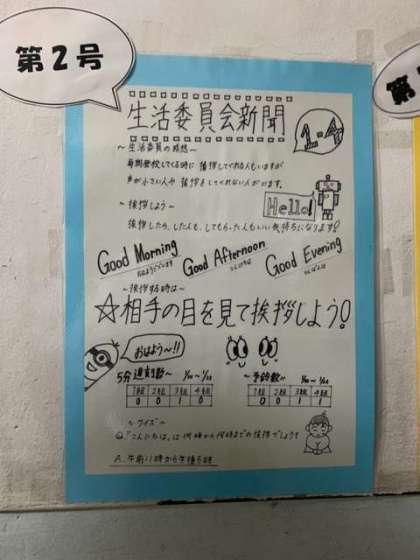 第2号
生活委員会新聞
1-4
～生活委員の感想～
毎朝登校してくる時に挨拶してくれる人もいますが
声が小さい人や挨拶をしてくれない人がいます。
～挨拶しよう～
挨拶したら、した人も、してもらった人もいい気持ちになります!
Hello!
Good Morning
おはようございます
Good Afternoon
こんにちは
Good Evening
こんばんは
～挨拶する時は～
☆相手の目を見て挨拶しよう!
おはよう～!!
5分遅刻数～
1組 2組 3組 4組
0 0 1 0
～予鈴数～
1組 2組 3組 4組
0 0 0 1
～クイズ～
Q.「こんにちは」は何時から何時までの挨拶でしょう?
A.午前11時から午後5時
第